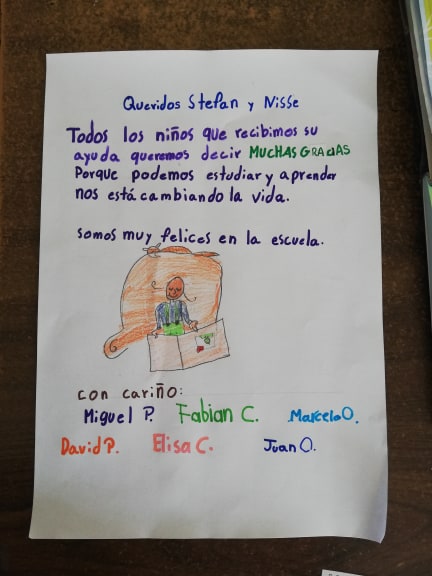 Queridos Stefan y Nisse
Todos los niños que recibimos su
ayuda queremos decir MUCHAS GRACIAS
Porque podemos estudiar y aprender
nos está cambiando la vida.
somos muy felices en la escuela.
con cariño:
Miguel P. Fabian C. Marcelo O.
David P. Elisa C. Juan O.